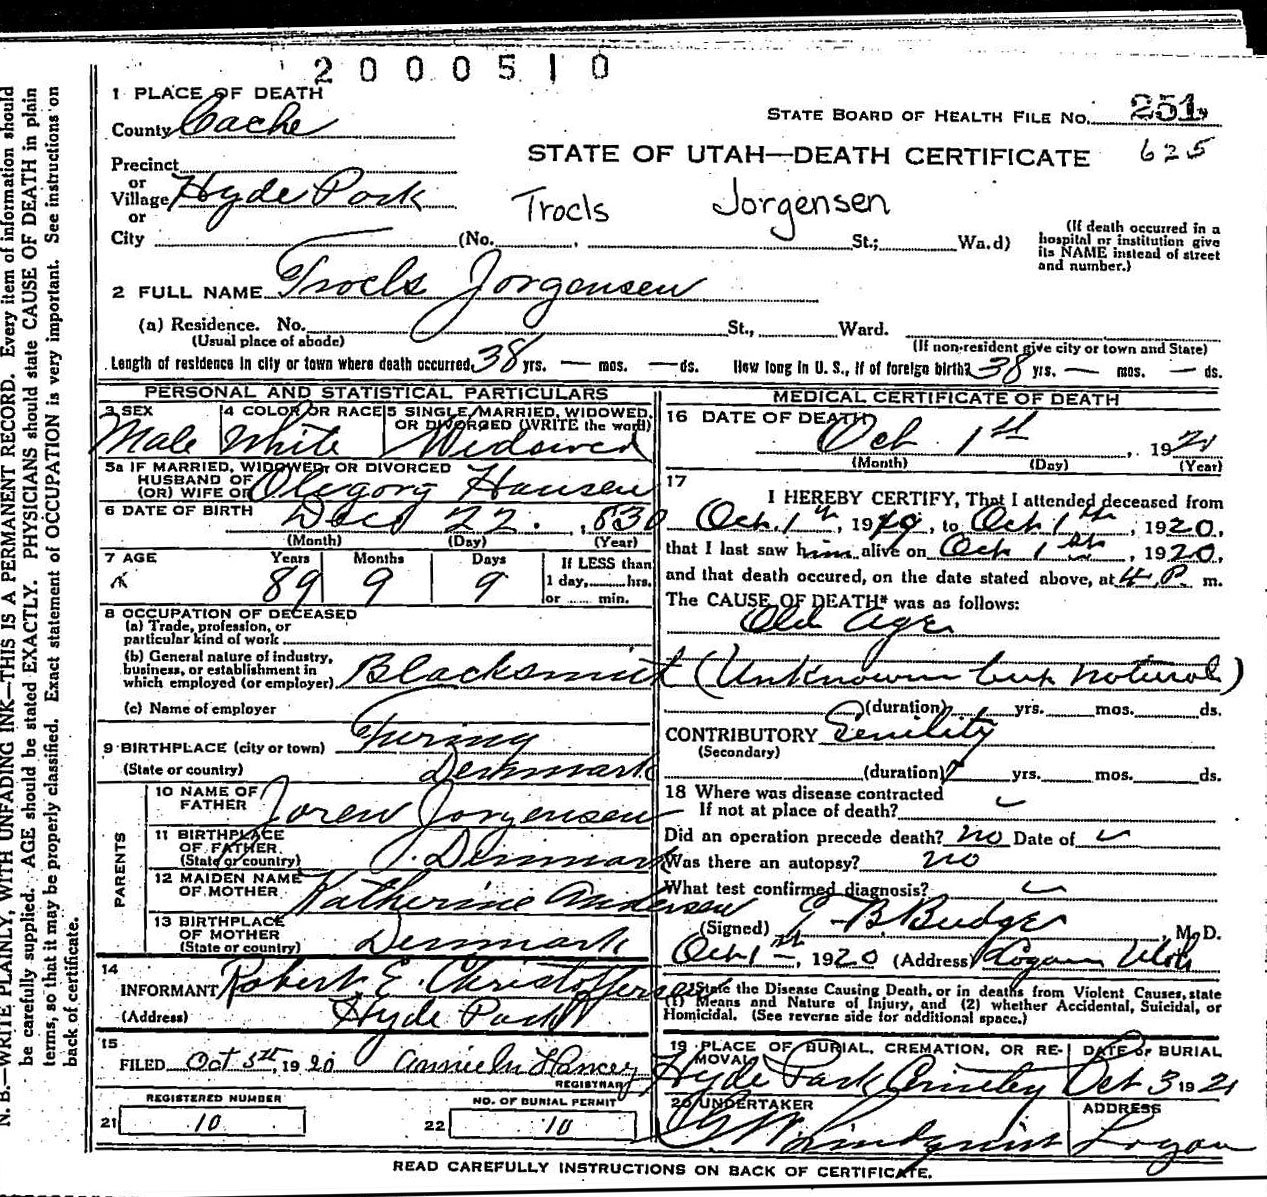 2000510
1 PLACE OF DEATH
County Cache
STATE BOARD OF HEALTH FILE NO. 251
625
STATE OF UTAH—DEATH CERTIFICATE
Precinct
or
Village Hyde Park
or
Trocls Jorgensen
City (No. , St.; Wa.d)
(If death occurred in a hospital or institution give its NAME instead of street and number.)
2 FULL NAME Trocls Jorgensen
(a) Residence. No. St., Ward.
(Usual place of abode)
(If non-resident give city or town and State)
Length of residence in city or town where death occurred 38 yrs. — mos. — ds. How long in U. S., if of foreign birth? 38 yrs. — mos. — ds.
PERSONAL AND STATISTICAL PARTICULARS
3 SEX Male
4 COLOR OR RACE White
5 SINGLE, MARRIED, WIDOWED, OR DIVORCED (WRITE the word) Widowed
5a IF MARRIED, WIDOWED, OR DIVORCED
HUSBAND OF
(OR) WIFE OF Hansen
6 DATE OF BIRTH Dec 22. , 1830
(Month) (Day) (Year)
7 AGE
Years Months Days
89 9 9
If LESS than 1 day, hrs. or min.
8 OCCUPATION OF DECEASED
(a) Trade, profession, or particular kind of work
(b) General nature of industry, business, or establishment in which employed (or employer) Blacksmith
(c) Name of employer
9 BIRTHPLACE (city or town)
(State or country) Denmark
PARENTS
10 NAME OF FATHER Joren Jorgensen
11 BIRTHPLACE OF FATHER (State or country) Denmark
12 MAIDEN NAME OF MOTHER Katherine Andersen
13 BIRTHPLACE OF MOTHER (State or country) Denmark
14
INFORMANT Robert E. Christoffersen
(Address) Hyde Park
15
FILED Oct 5th, 1920 Hancey
REGISTRAR
REGISTERED NUMBER
21 10
NO. OF BURIAL PERMIT
22 10
MEDICAL CERTIFICATE OF DEATH
16 DATE OF DEATH
Oct 1st , 192
(Month) (Day) (Year)
17
I HEREBY CERTIFY, That I attended deceased from
Oct. 1th, 1919, to Oct 1th, 1920,
that I last saw him alive on Oct 1th, 1920,
and that death occured, on the date stated above, at 4 P. m.
The CAUSE OF DEATH* was as follows:
Old Age
(Unknown but natural)
(duration) yrs. mos. ds.
CONTRIBUTORY Senility
(Secondary)
(duration) yrs. mos. ds.
18 Where was disease contracted
If not at place of death?
Did an operation precede death? no Date of
Was there an autopsy? no
What test confirmed diagnosis?
(Signed) B. Budge, M. D.
Oct 1—th, 1920 (Address) Logan Utah
*State the Disease Causing Death, or in deaths from Violent Causes, state
(1) Means and Nature of Injury, and (2) whether Accidental, Suicidal, or
Homicidal. (See reverse side for additional space.)
19 PLACE OF BURIAL, CREMATION, OR REMOVAL
Hyde Park
DATE OF BURIAL
Oct 3 192
20 UNDERTAKER
Lindquist
ADDRESS
Logan
READ CAREFULLY INSTRUCTIONS ON BACK OF CERTIFICATE.
N. B.—WRITE PLAINLY, WITH UNFADING INK—THIS IS A PERMANENT RECORD. Every item of information should
be carefully supplied. AGE should be stated EXACTLY. PHYSICIANS should state CAUSE OF DEATH in plain
terms, so that it may be properly classified. Exact statement of OCCUPATION is very important. See instructions on
back of certificate.